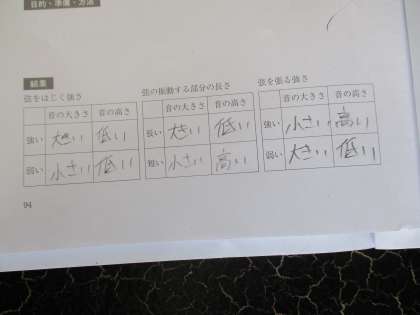 目的・準備・方法
結果
弦をはじく強さ
音の大きさ 音の高さ
強い 大きい 低い
弱い 小さい 低い
弦の振動する部分の長さ
音の大きさ 音の高さ
長い 大きい 低い
短い 小さい 高い
弦を張る強さ
音の大きさ 音の高さ
強い 小さい 高い
弱い 大きい 低い
94